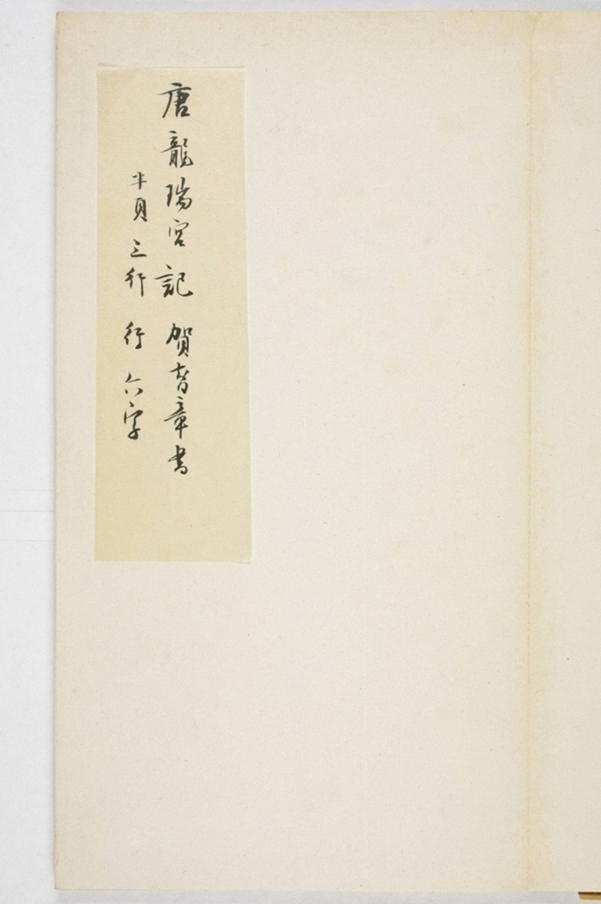 唐龍瑞宮記 賀知章書
半頁三行行六字